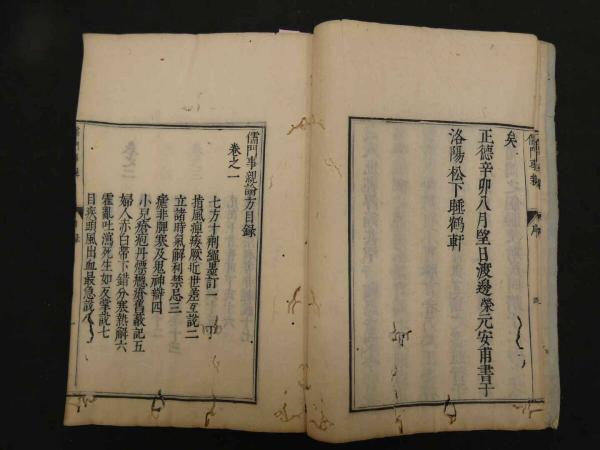 矣
正德辛卯八月望日渡邊榮元安甫書于
洛陽松下睡鶴軒
儒門事親
序
儒門事親論方目錄
卷之一
七方十劑繩墨訂一
指風痺痿厥近世差互說二
立諸時氣解利禁忌三
瘧非脾寒及鬼神辯四
小兒瘡疱丹熛癮疹舊蔽記五
婦人赤白帶下錯分寒熱解六
霍亂吐瀉死生如反掌說七
目疾頭風出血最急說八